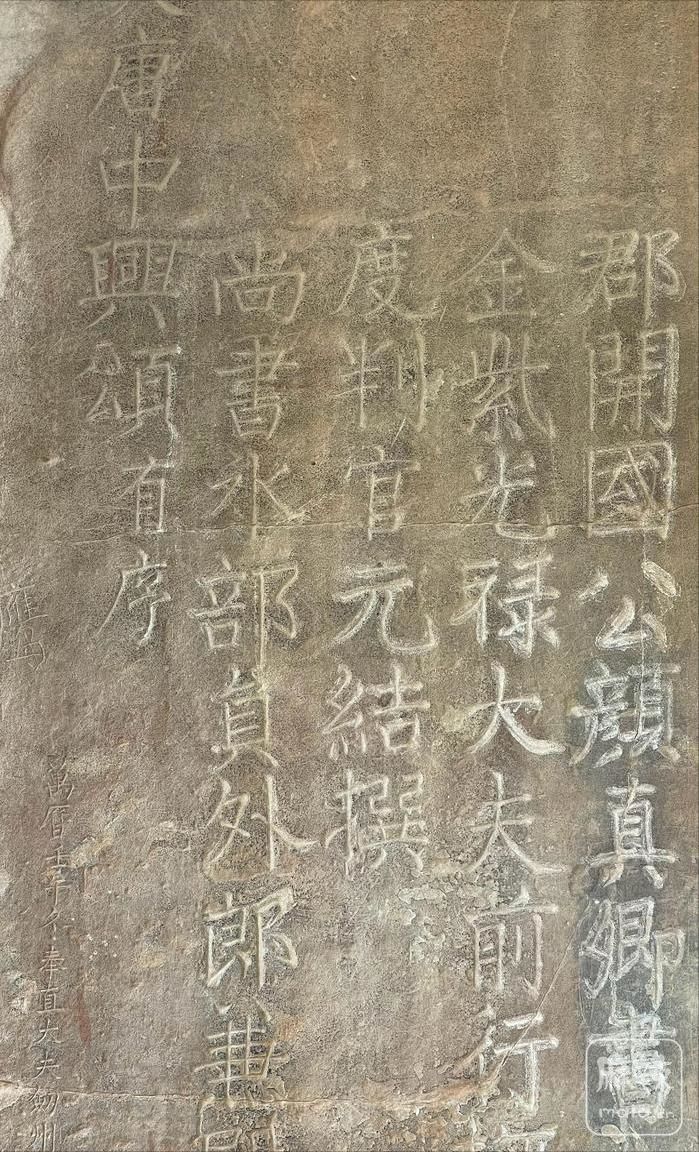 萬曆壬午冬奉直大夫
大唐中興頌有序
尚書水部員外郎兼
度判官元結撰
金紫光禄大夫前行
郡開國公顏真卿書